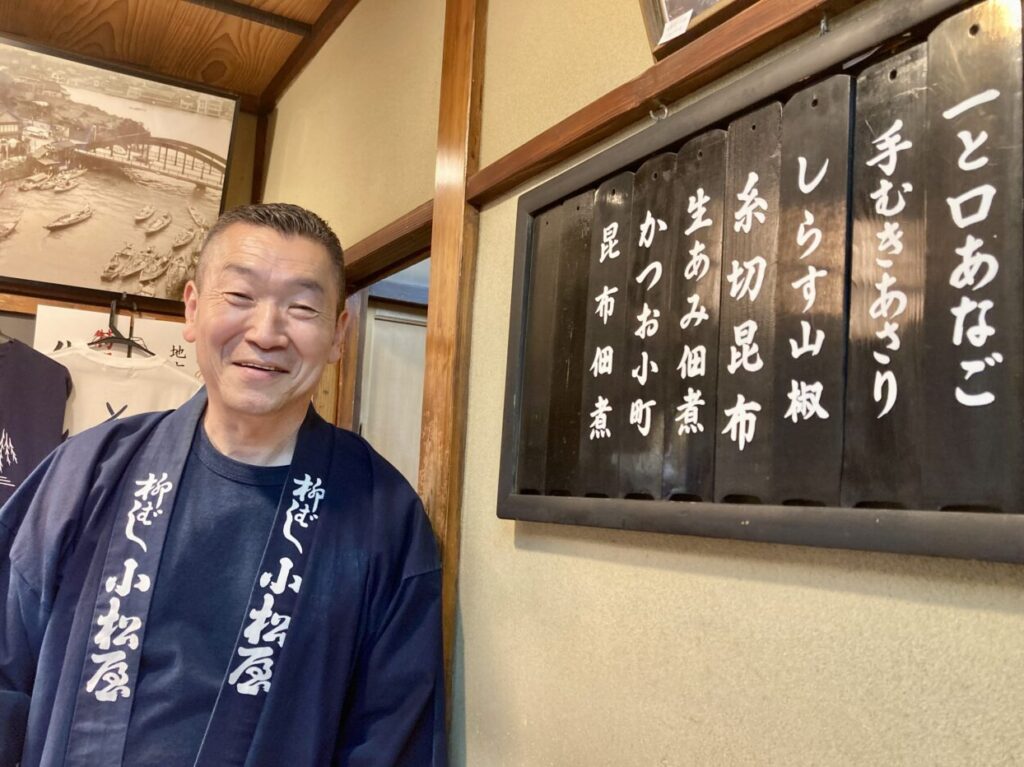 一と口あなご
手むきあさり
しらす山椒
糸切昆布
生あみ佃煮
かつお小町
昆布佃煮
柳ばし 小松屋
柳ばし 小松屋
地